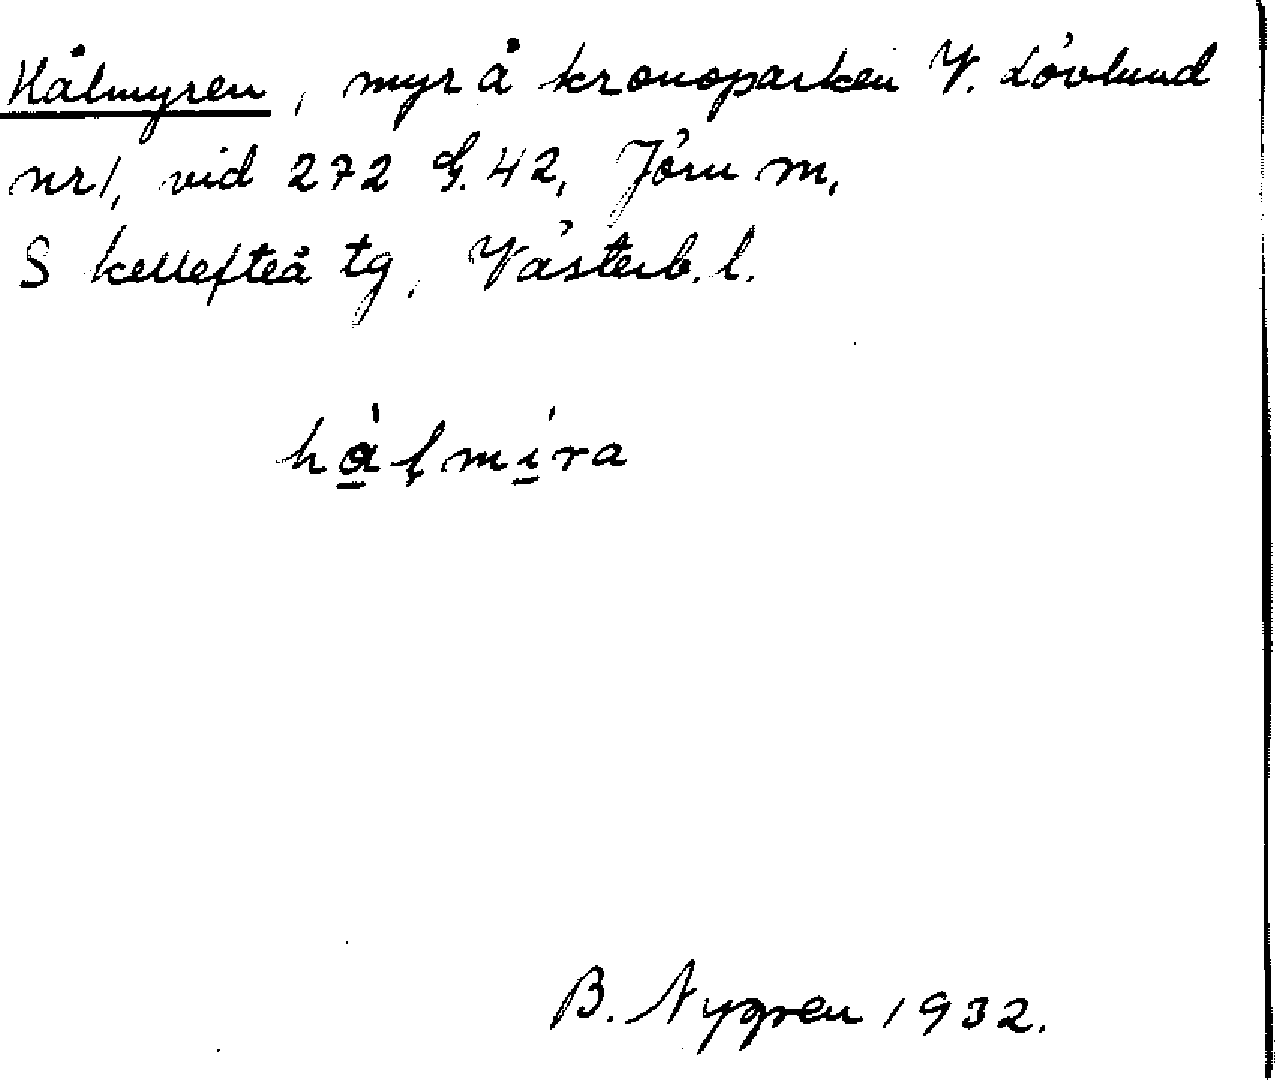 Hålmyren, myr å kronoparken V. Lövlund
nr 1, vid 272 G. 42, Jörn m,
Skellefteå tg, Västerb. l.
hålmira
B. Nygren 1932.